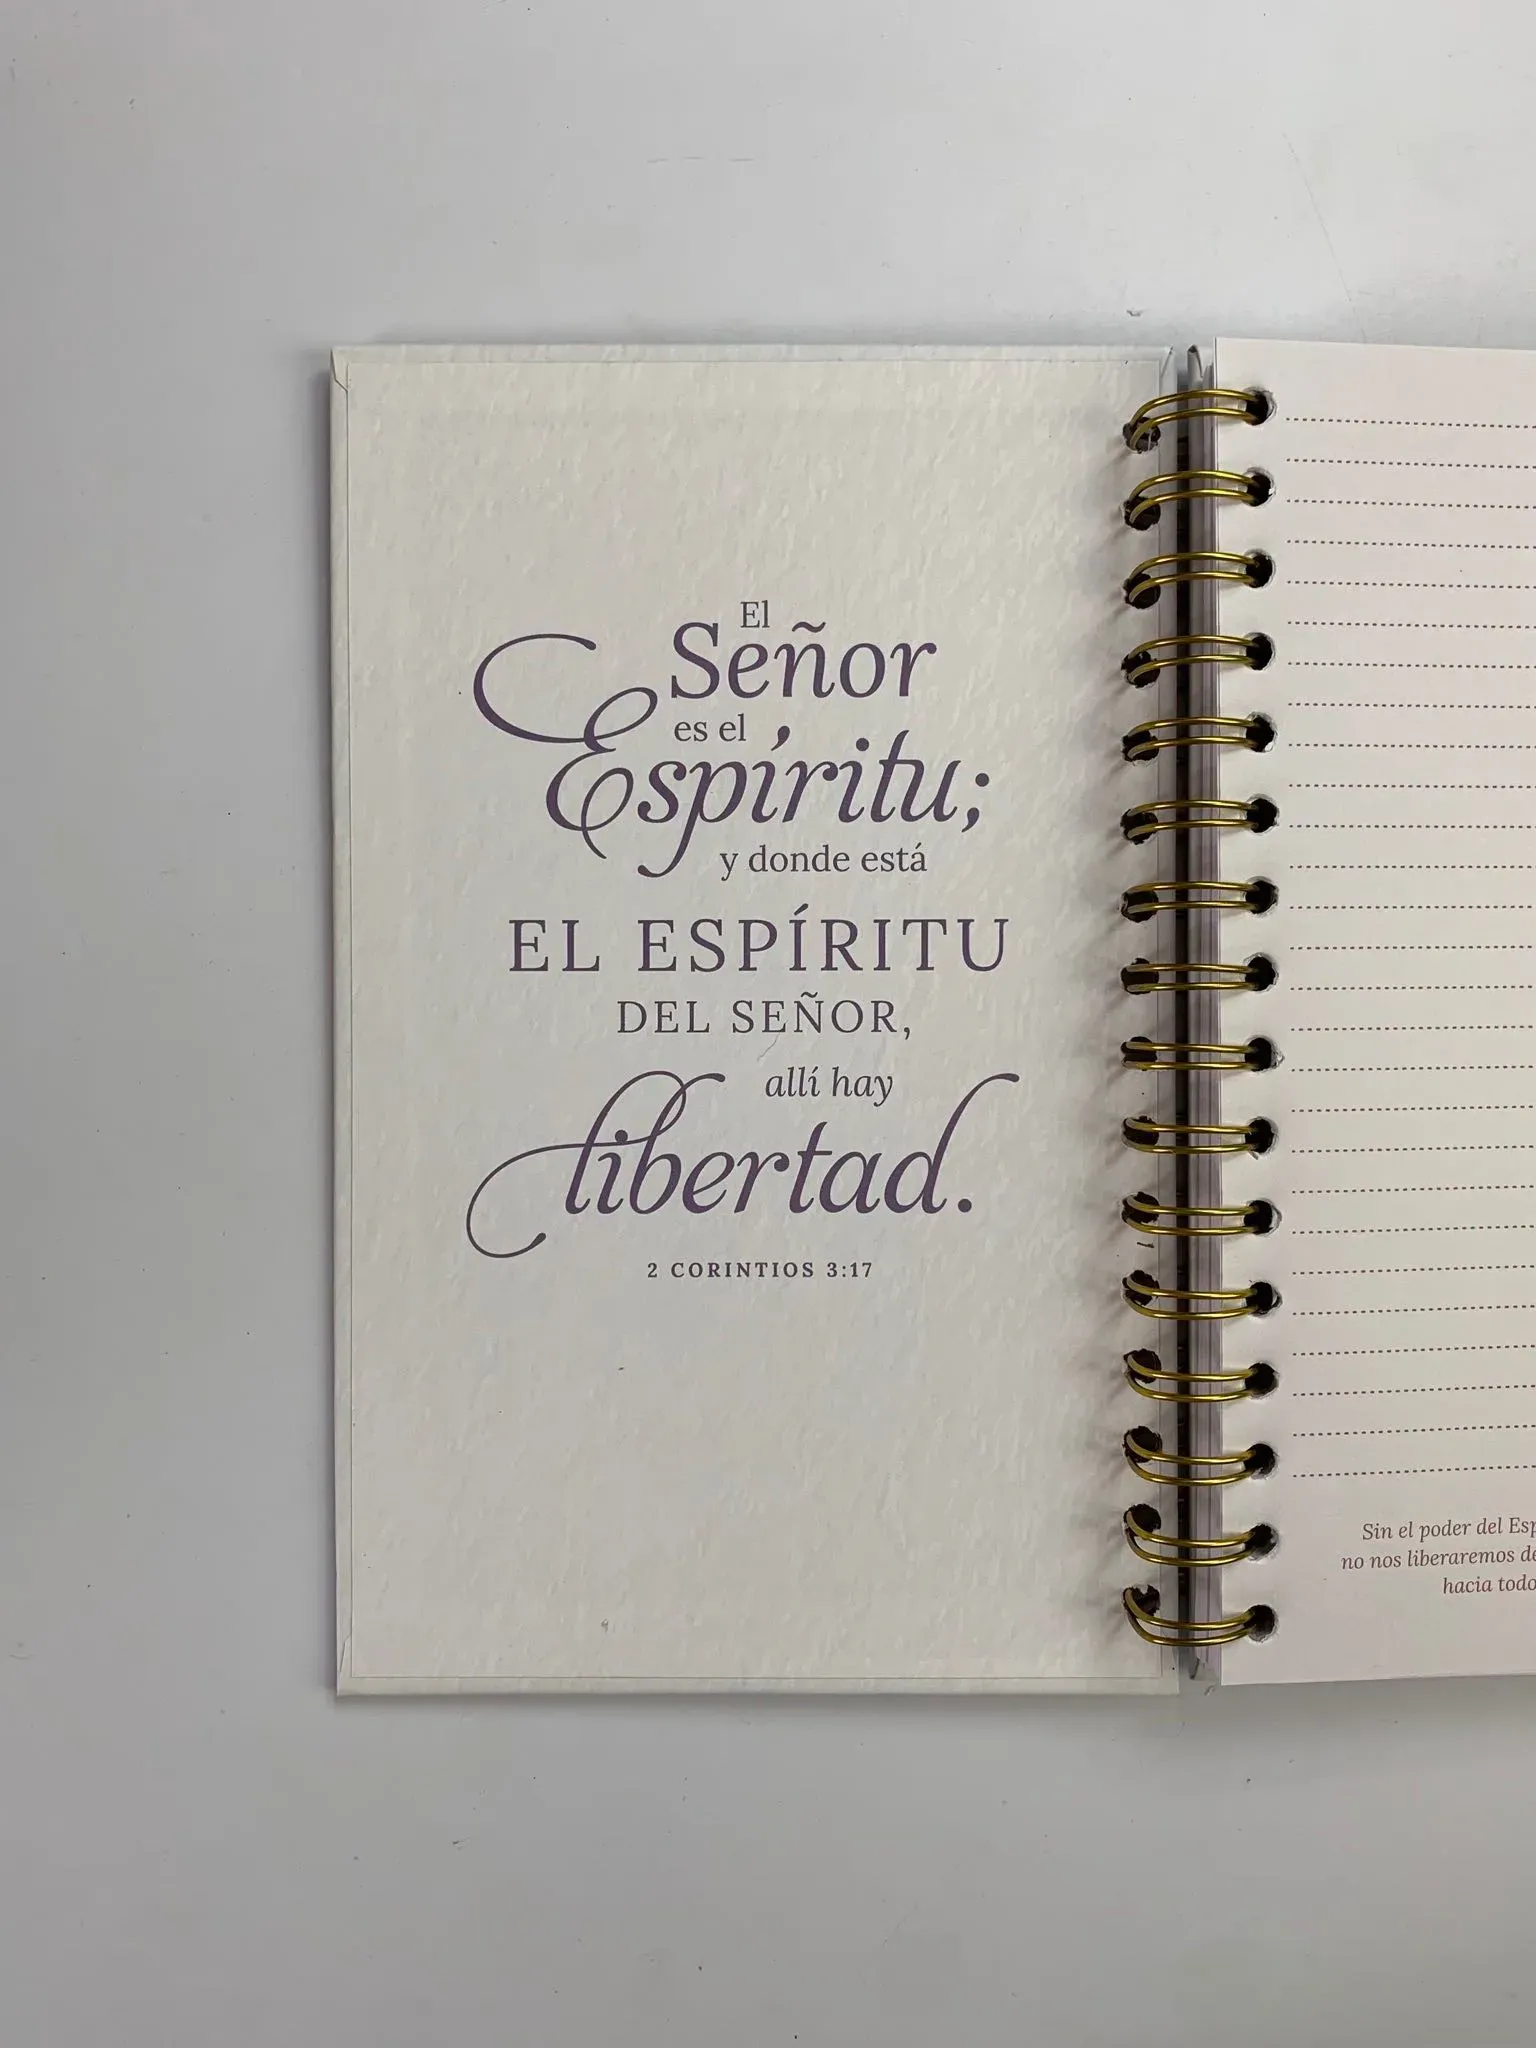 El
Señor
es el
Espíritu;
y donde está
EL ESPÍRITU
DEL SEÑOR,
allí hay
libertad.
2 CORINTIOS 3:17
Sin el poder del
no nos liberaremos
hacia